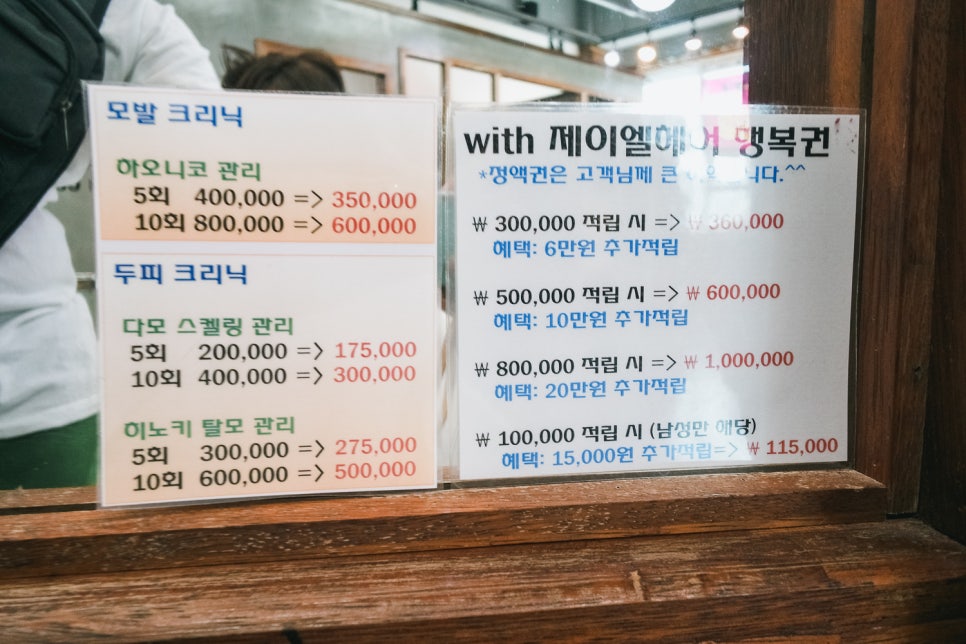 모발 크리닉
하오니코 관리
5회 400,000 => 350,000
10회 800,000 => 600,000
두피 크리닉
다모 스켈링 관리
5회 200,000 => 175,000
10회 400,000 => 300,000
히노키 탈모 관리
5회 300,000 => 275,000
10회 600,000 => 500,000
with 제이엘헤어 행복권
*정액권은 고객님께 큰 니다.^^
₩ 300,000 적립 시 => ₩ 360,000
혜택: 6만원 추가적립
₩ 500,000 적립 시 => ₩ 600,000
혜택: 10만원 추가적립
₩ 800,000 적립 시 => ₩ 1,000,000
혜택: 20만원 추가적립
₩ 100,000 적립 시 (남성만 해당)
혜택: 15,000원 추가적립=> ₩ 115,000